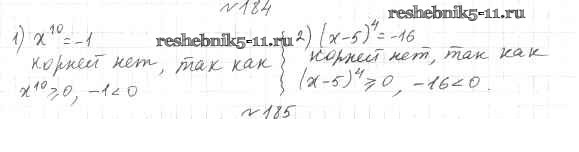 №184
reshebnik5-11.ru
1) x¹⁰=-1
корней нет, так как
x¹⁰⩾0, -1<0
reshebnik5-11.ru
2) (x-5)⁴=-16
корней нет, так как
(x-5)⁴⩾0, -16<0.
№185